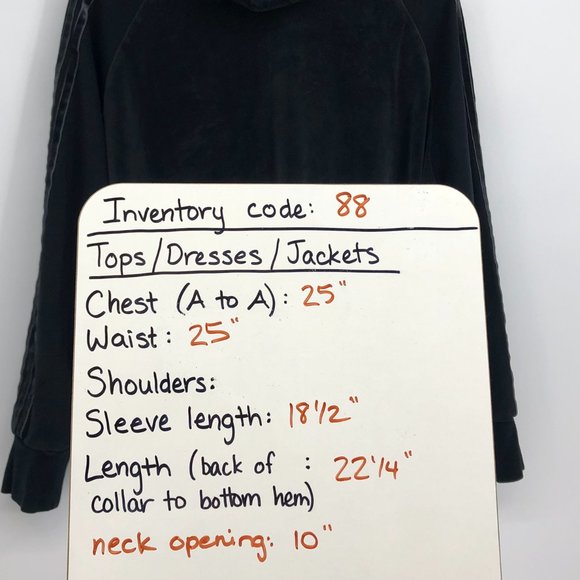 Inventory code: 88
Tops/Dresses/Jackets
Chest (A to A): 25"
Waist: 25"
Shoulders:
Sleeve length: 18 1/2"
Length (back of : 22 1/4"
collar to bottom hem)
neck opening: 10"